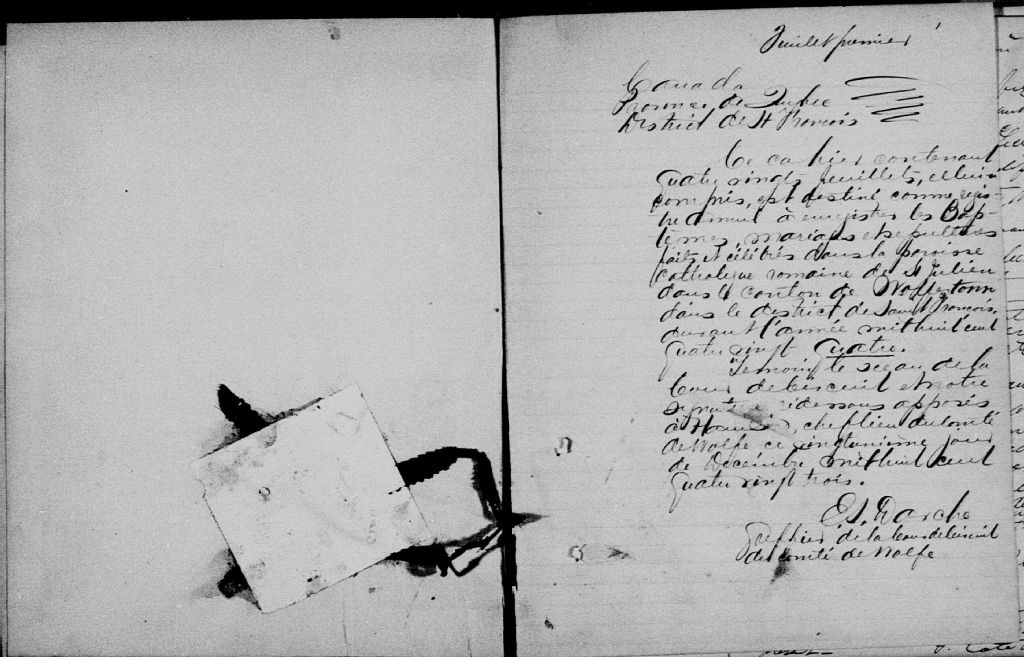 Feuillet premier
Canada
Province de Québec
District de St François
Ce cahier contenant
quatre vingts feuillets, celui ci
compris, est destiné comme régis-
tre annuel à enregistrer les Bap-
têmes, mariages et sépultures
faits et célébrés dans la paroisse
catholique romaine de St Julien
dans le canton de Wolfestown
dans le district de Saint François,
durant l'année mil huit cent
quatre vingt quatre.
Témoin le sceau de la
Cour de Circuit et notre
signature cidessous apposés
à Ham, chef lieu du comté
de Wolfe ce vingt unième jour
de Décembre mil huit cent
quatre vingt trois.
Darche
Greffier de la Cour de Circuit
du comté de Wolfe